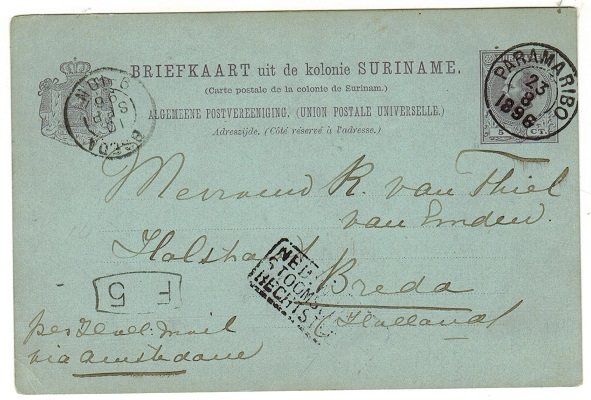 BRIEFKAART uit de kolonie SURINAME.
(Carte postale de la colonie de Surinam.)
ALGEMEENE POSTVEREENIGING. (UNION POSTALE UNIVERSELLE.)
Adreszijde. (Côté réservé à l'adresse.)
PARAMARIBO
23
8
1896
5 CT.
BREDA
Mevrouw R. van Thiel
van Emden.
Breda
Holland
NED.
STOOMS
RECHTS
F 5
per Holl: Mail
via Amsterdam